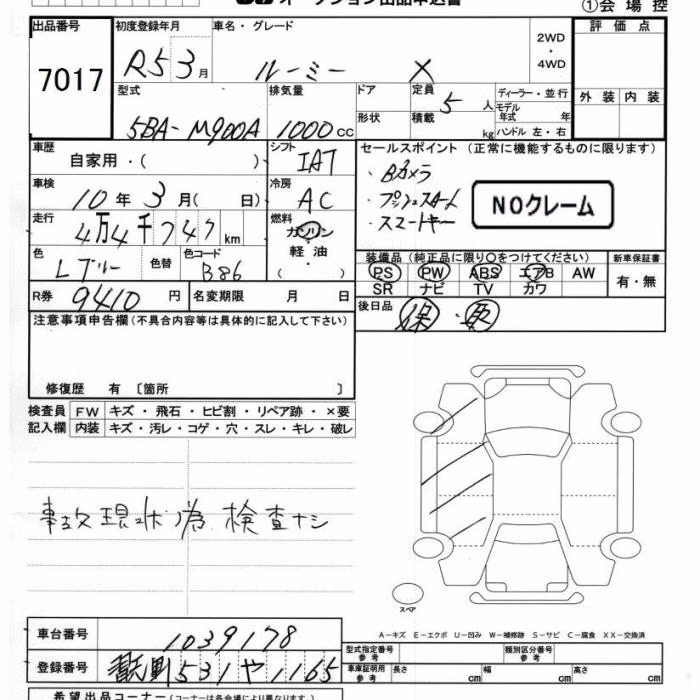 オークション出品申込書
①会場控
出品番号
7017
初度登録年月
R5 3月
車名・グレード
ルーミー X
2WD
・
4WD
評価点
外装 内装
型式
5BA-M900A
排気量
1000cc
ドア
形状
定員
5人
積載
kg
ディーラー・並行
モデル年式 年
ハンドル 左・右
車歴
自家用・( )
シフト
IAT
セールスポイント (正常に機能するものに限ります)
・Bカメラ
・プッシュスタート
・スマートキー
NOクレーム
車検
10年3月( 日)
冷房
AC
走行
4万4千747km
燃料
ガソリン
・
軽油
( )
色
Lブルー
色替
色コード
B86
装備品 (純正品に限り○をつけてください)
PS PW ABS エアB AW
SR ナビ TV カワ
新車保証書
有・無
R券
9410円
名変期限 月 日
後日品
保・取
注意事項申告欄(不具合内容等は具体的に記入して下さい)
修復歴 有〔箇所 〕
検査員 FW キズ・飛石・ヒビ割・リペア跡・×要
記入欄 内装 キズ・汚レ・コゲ・穴・スレ・キレ・破レ
事故現状の為 検査ナシ
スペア
A－キズ E－エクボ U－凹み W－補修跡 S－サビ C－腐食 XX－交換済
車台番号
1039178
登録番号
531 や 1165
型式指定番号
参考
類別区分番号
参考
車庫証明用
参考
長さ cm 幅 cm 高さ cm
希望出品コーナー(コーナーは各会場により異なります。)